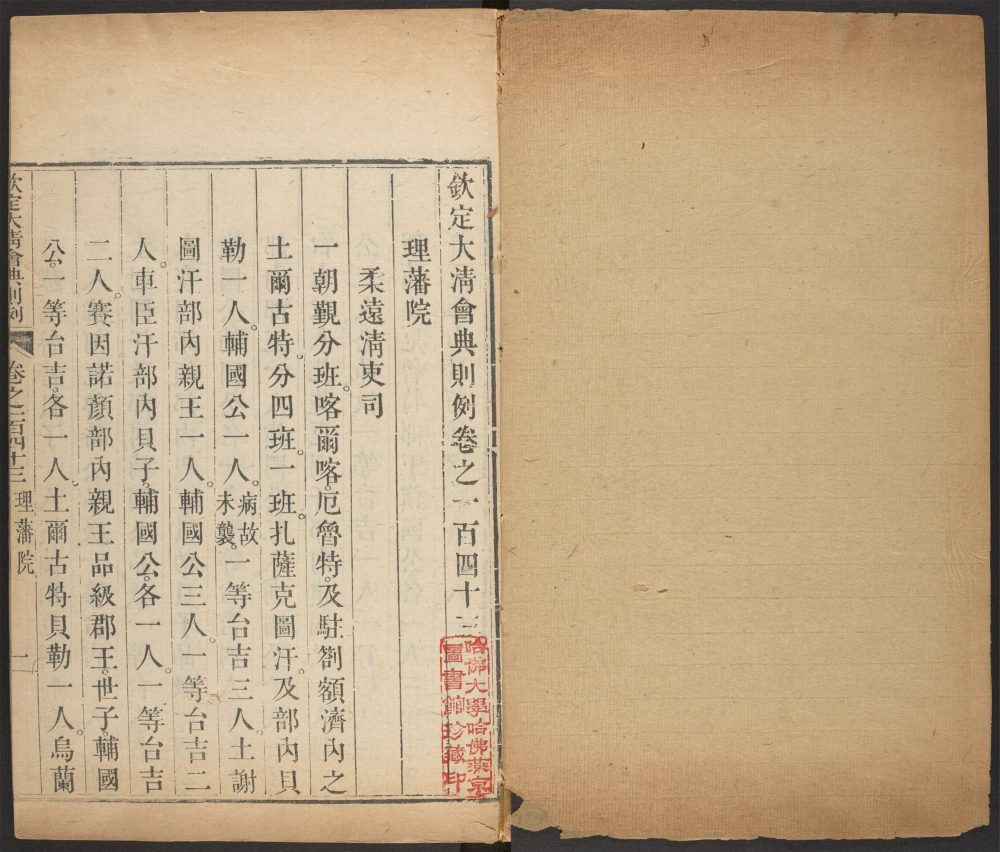 欽定大淸會典則例卷之一百四十三
理藩院
柔遠淸吏司
一朝覲分班。喀爾喀。厄魯特。及駐劄額濟內之
土爾古特。分四班。一班。扎薩克圖汗。及部內貝
勒一人。輔國公一人。病故未襲。一等台吉三人。土謝
圖汗部內親王一人。輔國公三人。一等台吉二
人。車臣汗部內貝子。輔國公。各一人。一等台吉
二人。賽因諾顏部內親王品級郡王。世子。輔國
公。一等台吉。各一人。土爾古特貝勒一人。烏蘭
欽定大淸會典則例 卷之一百四十三 理藩院 一
哈佛大學哈佛燕京
圖書館珍藏印